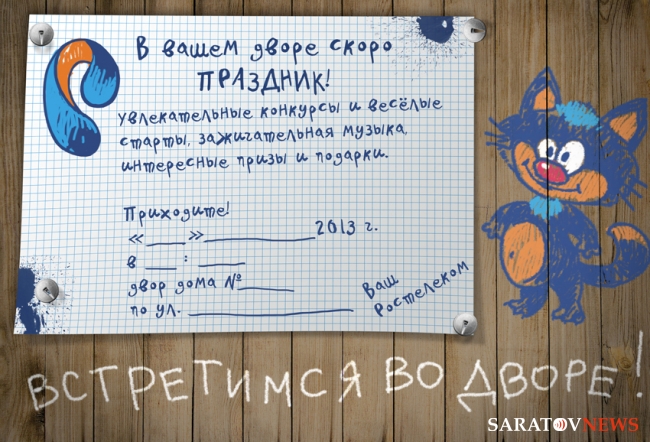 В вашем дворе скоро
ПРАЗДНИК!
увлекательные конкурсы и весёлые
старты, зажигательная музыка,
интересные призы и подарки.
Приходите!
«____»____________2013 г.
в ____ : ______
двор дома №_______
по ул. _____________________
Ваш
Ростелеком
ВСТРЕТИМСЯ ВО ДВОРЕ!
SARATOVNEWS